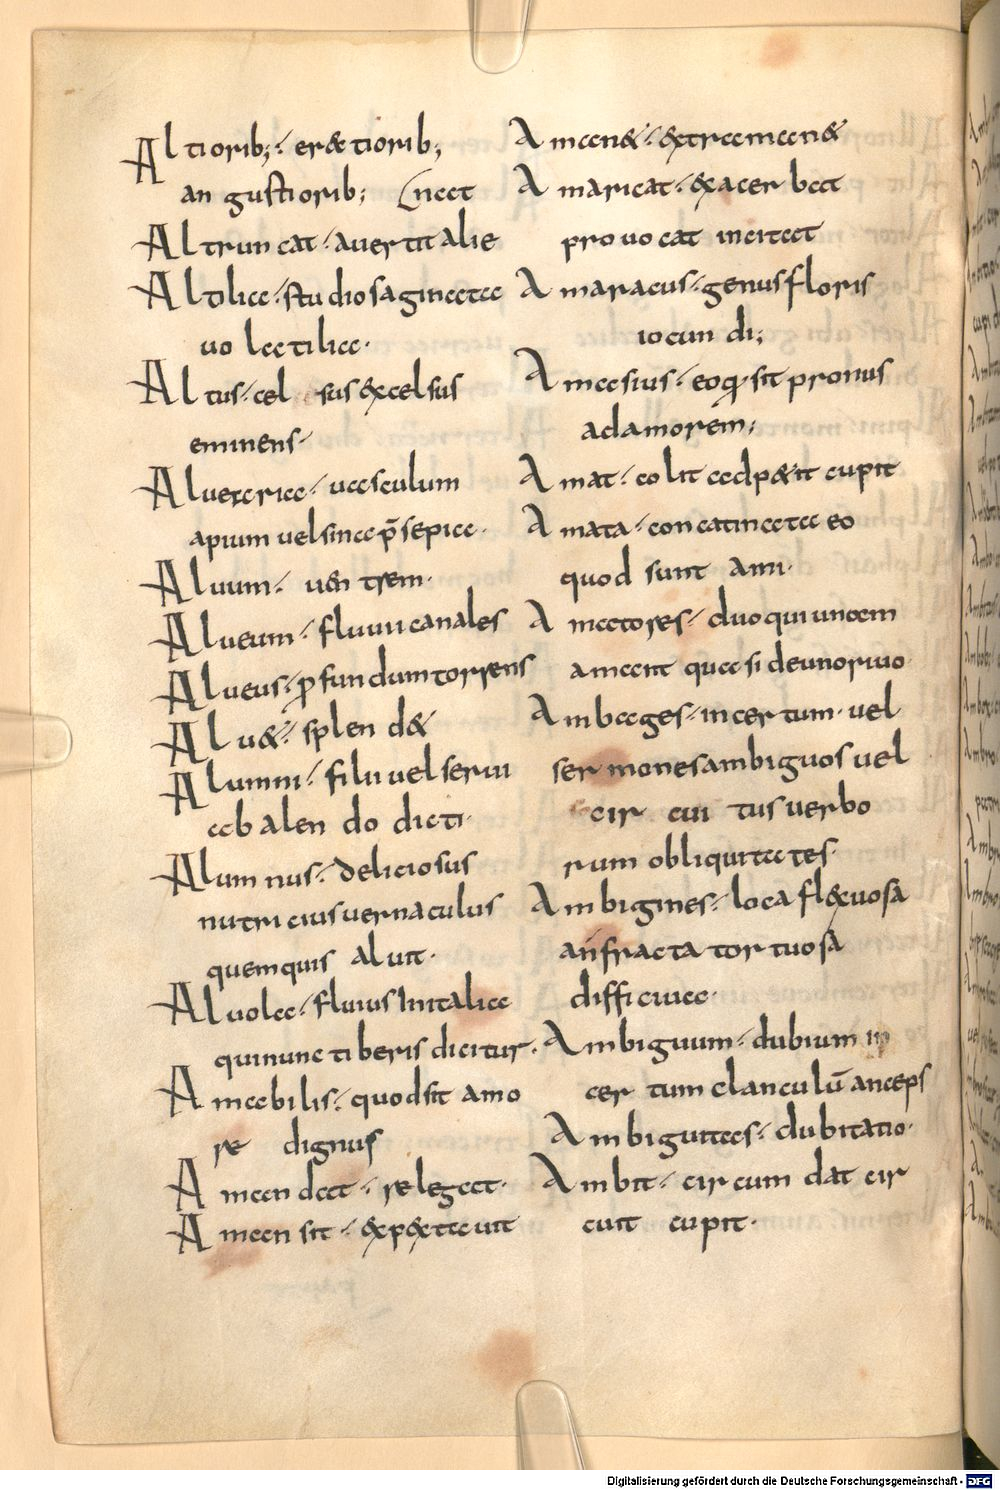 Altiorib;· er&tiorib;
angustiorib; (neet
Altruncat· auertit alie
Altilia· studiosaginata
uolatilia·
Altus· celsus &celsus
eminens·
Alueraria· uasculum
apium uel sinap̄sepia·
Aluum· uentrem·
Alueum· fluuii canales
Alueus· ꝓfundum torrens
Alu&· splend&
Alumni· filii uel serui
ab alendo dicti·
Alumnus· deliciosus
nutricius uernaculus
quem quis aluit·
Aluola· fluius Initalia
qui nunc tiberis dicitur·
Amabilis· quod sit amo
re dignus
Amandat· relegat·
Amansit· &p&tauit
Aman&· &traman&
Amaricat· &acerbat
prouocat incitat
Amaracus· genus floris
iocundi;
Amasius· eoq̣ sit pronus
ad amorem;
Amat· colit adp&it cupit
Amata· concatinata eo
quod sunt ami·
Amatores· duo qui unam
amant quasi de uno riuo
Ambages· incertum· uel
sermones ambiguos uel
circuitus uerbo
rum obliquitates·
Ambigines· loca fl&uosa
anfracta tortuosa
difficiuia·
Ambiguum· dubium in
certum clanculū anceps
Ambiguitas· dubitatio·
Ambit· circumdat cir
cuit cupit·
Digitalisierung gefördert durch die Deutsche Forschungsgemeinschaft - DFG